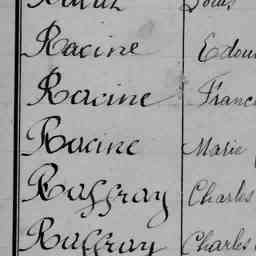 Louis
Racine Edou
Racine Franc
Racine Marie
Raffray Charles
Raffray Charles